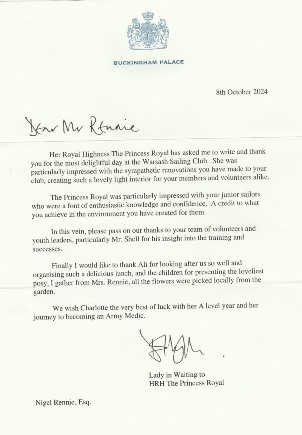 BUCKINGHAM PALACE
8th October 2024
Dear Mr Rennie
Her Royal Highness The Princess Royal has asked me to write and thank
you for the most delightful day at the Warsash Sailing Club. She was
particularly impressed with the sympathetic renovations you have made to your
club, creating such a lovely light interior for your members and volunteers alike.
The Princess Royal was particularly impressed with your junior sailors
who were a font of enthusiastic knowledge and confidence. A credit to what
you achieve in the environment you have created for them.
In this vein, please pass on our thanks to your team of volunteers and
youth leaders, particularly Mr. Shell for his insight into the training and
successes.
Finally I would like to thank Ali for looking after us so well and
organising such a delicious lunch, and the children for presenting the loveliest
posy, I gather from Mrs. Rennie, all the flowers were picked locally from the
garden.
We wish Charlotte the very best of luck with her A level year and her
journey to becoming an Army Medic.
Lady in Waiting to
HRH The Princess Royal
Nigel Rennie, Esq.